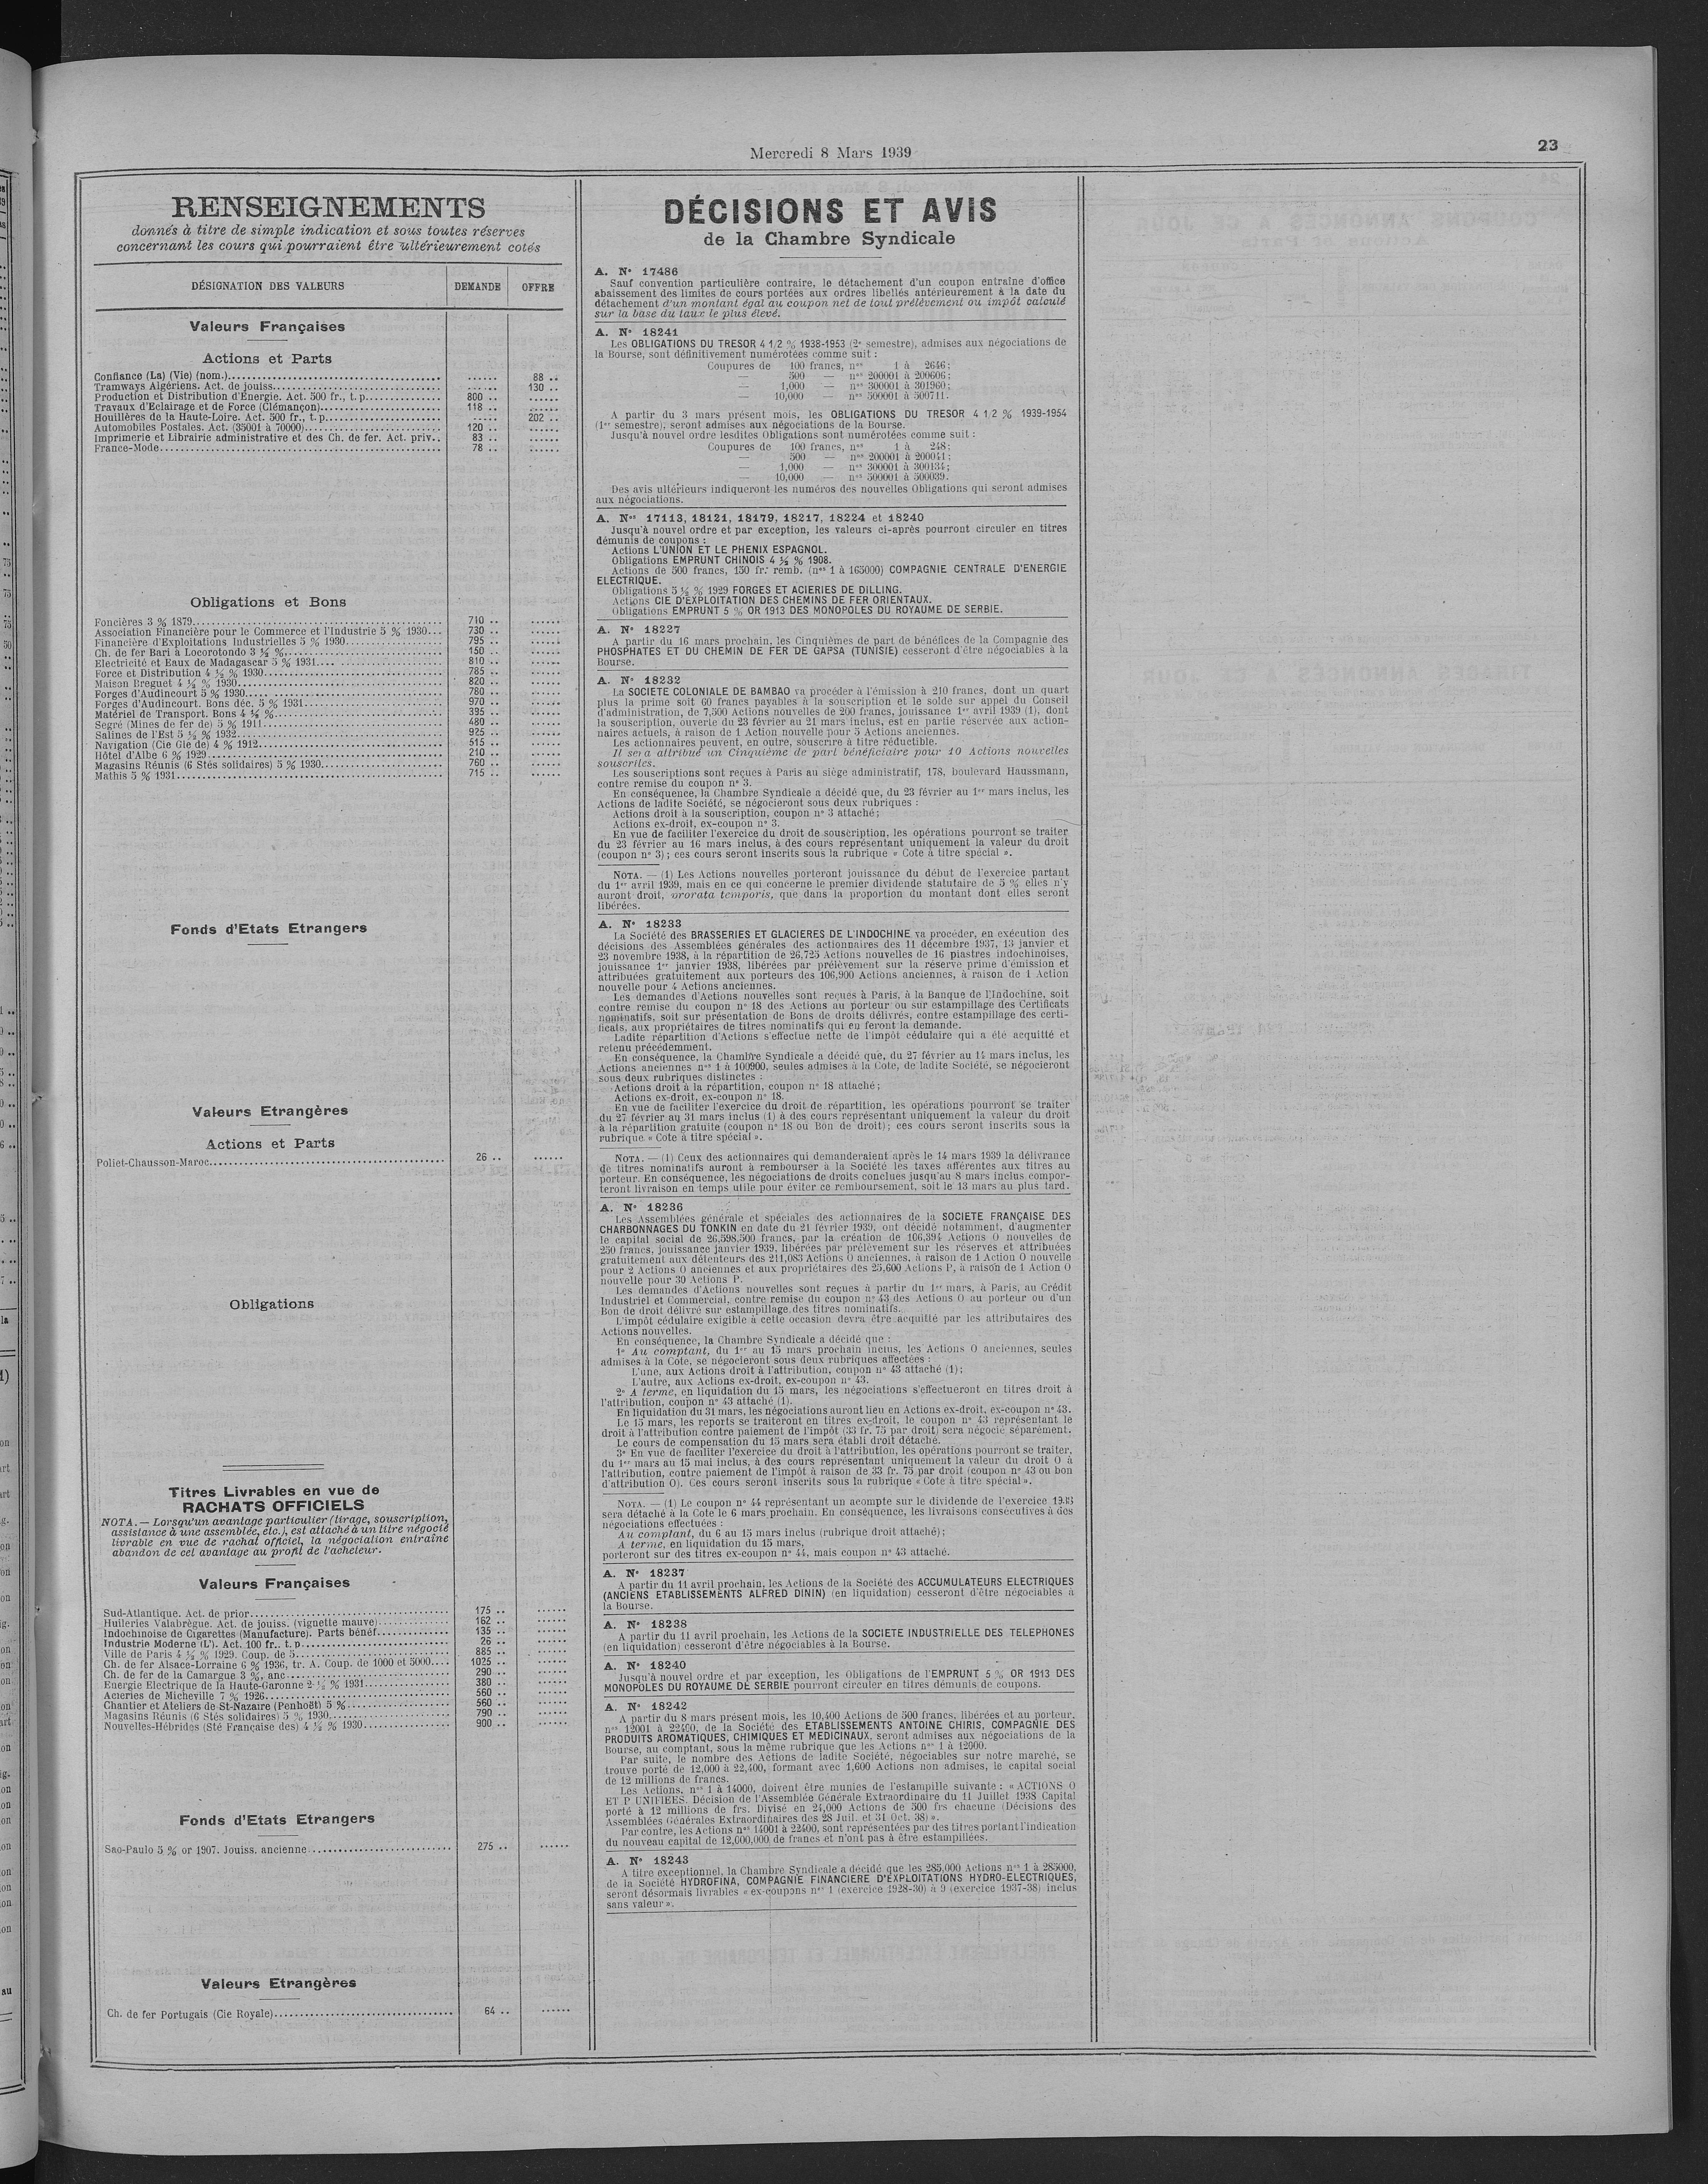 Mercredi 8 Mars 1939
23
RENSEIGNEMENTS
donnés à titre de simple indication et sous toutes réserves
concernant les cours qui pourraient être ultérieurement cotés
DÉSIGNATION DES VALEURS DEMANDE OFFRE
Valeurs Françaises
Actions et Parts
Confiance (La) (Vie) (nom.) ...... 88 ..
Tramways Algériens. Act. de jouiss. ...... 130 ..
Production et Distribution d'Energie. Act. 500 fr., t. p. 800 .. ......
Travaux d'Eclairage et de Force (Clémançon) 118 .. ......
Houillères de la Haute-Loire. Act. 500 fr., t. p. ...... 202 ..
Automobiles Postales. Act. (35001 à 70000) 120 .. ......
Imprimerie et Librairie administrative et des Ch. de fer. Act. priv. 83 .. ......
France-Mode 78 .. ......
Obligations et Bons
Foncières 3 % 1879 710 .. ......
Association Financière pour le Commerce et l'Industrie 5 % 1930 730 .. ......
Financière d'Exploitations Industrielles 5 % 1930 795 .. ......
Ch. de fer Bari à Locorotondo 3 ½ % 150 .. ......
Electricité et Eaux de Madagascar 5 % 1931 810 .. ......
Force et Distribution 4 ½ % 1930 785 .. ......
Maison Breguet 4 ½ % 1930 820 .. ......
Forges d'Audincourt 5 % 1930 780 .. ......
Forges d'Audincourt. Bons déc. 5 % 1931 970 .. ......
Matériel de Transport. Bons 4 ½ % 395 .. ......
Segré (Mines de fer de) 5 % 1911 480 .. ......
Salines de l'Est 5 ½ % 1932 925 .. ......
Navigation (Cie Gle de) 4 % 1912 515 .. ......
Hôtel d'Albe 6 % 1929 210 .. ......
Magasins Réunis (6 Stés solidaires) 5 % 1930 760 .. ......
Mathis 5 % 1931 715 .. ......
Fonds d'Etats Etrangers
Valeurs Etrangères
Actions et Parts
Poliet-Chausson-Maroc 26 .. ......
Obligations
Titres Livrables en vue de
RACHATS OFFICIELS
NOTA. — Lorsqu'un avantage particulier (tirage, souscription,
assistance à une assemblée, etc.), est attaché à un titre négocié
livrable en vue de rachat officiel, la négociation entraîne
abandon de cet avantage au profit de l'acheteur.
Valeurs Françaises
Sud-Atlantique. Act. de prior. 175 .. ......
Huileries Valabrègue. Act. de jouiss. (vignette mauve) 162 .. ......
Indochinoise de Cigarettes (Manufacture). Parts bénéf. 135 .. ......
Industrie Moderne (L'). Act. 100 fr., t. p. 26 .. ......
Ville de Paris 4 ½ % 1929. Coup. de 5 885 .. ......
Ch. de fer Alsace-Lorraine 6 % 1936, tr. A. Coup. de 1000 et 5000 1025 .. ......
Ch. de fer de la Camargue 3 %, anc. 290 .. ......
Energie Electrique de la Haute-Garonne 2 ½ % 1931 380 .. ......
Acieries de Micheville 7 % 1926 560 .. ......
Chantier et Ateliers de St-Nazaire (Penhoët) 5 % 560 .. ......
Magasins Réunis (6 Stés solidaires) 5 % 1930 790 .. ......
Nouvelles-Hébrides (Sté Française des) 4 ½ % 1930 900 .. ......
Fonds d'Etats Etrangers
Sao-Paulo 5 % or 1907. Jouiss. ancienne 275 .. ......
Valeurs Etrangères
Ch. de fer Portugais (Cie Royale) 64 .. ......
DÉCISIONS ET AVIS
de la Chambre Syndicale
A. N° 17486
Sauf convention particulière contraire, le détachement d'un coupon entraîne d'office
abaissement des limites de cours portées aux ordres libellés antérieurement à la date du
détachement d'un montant égal au coupon net de tout prélèvement ou impôt calculé
sur la base du taux le plus élevé.
A. N° 18241
Les OBLIGATIONS DU TRESOR 4 1/2 % 1938-1953 (2e semestre), admises aux négociations de
la Bourse, sont définitivement numérotées comme suit :
Coupures de 100 francs, nos 1 à 2646;
— 500 — nos 200001 à 200606;
— 1,000 — nos 300001 à 301960;
— 10,000 — nos 500001 à 500711.
A partir du 3 mars présent mois, les OBLIGATIONS DU TRESOR 4 1/2 % 1939-1954
(1er semestre), seront admises aux négociations de la Bourse.
Jusqu'à nouvel ordre lesdites Obligations sont numérotées comme suit :
Coupures de 100 francs, nos 1 à 248;
— 500 — nos 200001 à 200041;
— 1,000 — nos 300001 à 300134;
— 10,000 — nos 500001 à 500039.
Des avis ultérieurs indiqueront les numéros des nouvelles Obligations qui seront admises
aux négociations.
A. Nos 17113, 18121, 18179, 18217, 18224 et 18240
Jusqu'à nouvel ordre et par exception, les valeurs ci-après pourront circuler en titres
démunis de coupons :
Actions L'UNION ET LE PHENIX ESPAGNOL.
Obligations EMPRUNT CHINOIS 4 ½ % 1908.
Actions de 500 francs, 150 fr. remb. (nos 1 à 165000) COMPAGNIE CENTRALE D'ENERGIE
ELECTRIQUE.
Obligations 5 ½ % 1929 FORGES ET ACIERIES DE DILLING.
Actions CIE D'EXPLOITATION DES CHEMINS DE FER ORIENTAUX.
Obligations EMPRUNT 5 % OR 1913 DES MONOPOLES DU ROYAUME DE SERBIE.
A. N° 18227
A partir du 16 mars prochain, les Cinquièmes de part de bénéfices de la Compagnie des
PHOSPHATES ET DU CHEMIN DE FER DE GAFSA (TUNISIE) cesseront d'être négociables à la
Bourse.
A. N° 18232
La SOCIETE COLONIALE DE BAMBAO va procéder à l'émission à 210 francs, dont un quart
plus la prime soit 60 francs payables à la souscription et le solde sur appel du Conseil
d'administration, de 7,500 Actions nouvelles de 200 francs, jouissance 1er avril 1939 (1), dont
la souscription, ouverte du 23 février au 21 mars inclus, est en partie réservée aux action-
naires actuels, à raison de 1 Action nouvelle pour 5 Actions anciennes.
Les actionnaires peuvent, en outre, souscrire à titre réductible.
Il sera attribué un Cinquième de part bénéficiaire pour 10 Actions nouvelles
souscrites.
Les souscriptions sont reçues à Paris au siège administratif, 178, boulevard Haussmann,
contre remise du coupon n° 3.
En conséquence, la Chambre Syndicale a décidé que, du 23 février au 1er mars inclus, les
Actions de ladite Société, se négocieront sous deux rubriques :
Actions droit à la souscription, coupon n° 3 attaché;
Actions ex-droit, ex-coupon n° 3.
En vue de faciliter l'exercice du droit de souscription, les opérations pourront se traiter
du 23 février au 16 mars inclus, à des cours représentant uniquement la valeur du droit
(coupon n° 3); ces cours seront inscrits sous la rubrique « Cote à titre spécial ».
NOTA. — (1) Les Actions nouvelles porteront jouissance du début de l'exercice partant
du 1er avril 1939, mais en ce qui concerne le premier dividende statutaire de 5 % elles n'y
auront droit, prorata temporis, que dans la proportion du montant dont elles seront
libérées.
A. N° 18233
La Société des BRASSERIES ET GLACIERES DE L'INDOCHINE va procéder, en exécution des
décisions des Assemblées générales des actionnaires des 11 décembre 1937, 13 janvier et
23 novembre 1938, à la répartition de 26,725 Actions nouvelles de 16 piastres indochinoises,
jouissance 1er janvier 1938, libérées par prélèvement sur la réserve prime d'émission et
attribuées gratuitement aux porteurs des 106,900 Actions anciennes, à raison de 1 Action
nouvelle pour 4 Actions anciennes.
Les demandes d'Actions nouvelles sont reçues à Paris, à la Banque de l'Indochine, soit
contre remise du coupon n° 18 des Actions au porteur ou sur estampillage des Certificats
nominatifs, soit sur présentation de Bons de droits délivrés, contre estampillage des certi-
ficats, aux propriétaires de titres nominatifs qui en feront la demande.
Ladite répartition d'Actions s'effectue nette de l'impôt cédulaire qui a été acquitté et
retenu précédemment.
En conséquence, la Chambre Syndicale a décidé que, du 27 février au 14 mars inclus, les
Actions anciennes nos 1 à 100900, seules admises à la Cote, de ladite Société, se négocieront
sous deux rubriques distinctes :
Actions droit à la répartition, coupon n° 18 attaché;
Actions ex-droit, ex-coupon n° 18.
En vue de faciliter l'exercice du droit de répartition, les opérations pourront se traiter
du 27 février au 31 mars inclus (1) à des cours représentant uniquement la valeur du droit
à la répartition gratuite (coupon n° 18 ou Bon de droit); ces cours seront inscrits sous la
rubrique « Cote à titre spécial ».
NOTA. — (1) Ceux des actionnaires qui demanderaient après le 14 mars 1939 la délivrance
de titres nominatifs auront à rembourser à la Société les taxes afférentes aux titres au
porteur. En conséquence, les négociations de droits conclues jusqu'au 8 mars inclus compor-
teront livraison en temps utile pour éviter ce remboursement, soit le 13 mars au plus tard.
A. N° 18236
Les Assemblées générale et spéciales des actionnaires de la SOCIETE FRANÇAISE DES
CHARBONNAGES DU TONKIN en date du 21 février 1939, ont décidé notamment, d'augmenter
le capital social de 26,598,500 francs, par la création de 106,394 Actions O nouvelles de
250 francs, jouissance janvier 1939, libérées par prélèvement sur les réserves et attribuées
gratuitement aux détenteurs des 211,083 Actions O anciennes, à raison de 1 Action O nouvelle
pour 2 Actions O anciennes et aux propriétaires des 25,600 Actions P, à raison de 1 Action O
nouvelle pour 30 Actions P.
Les demandes d'Actions nouvelles sont reçues à partir du 1er mars, à Paris, au Crédit
Industriel et Commercial, contre remise du coupon n° 43 des Actions O au porteur ou d'un
Bon de droit délivré sur estampillage des titres nominatifs.
L'impôt cédulaire exigible à cette occasion devra être acquitté par les attributaires des
Actions nouvelles.
En conséquence, la Chambre Syndicale a décidé que :
1° Au comptant, du 1er au 15 mars prochain inclus, les Actions O anciennes, seules
admises à la Cote, se négocieront sous deux rubriques affectées :
L'une, aux Actions droit à l'attribution, coupon n° 43 attaché (1);
L'autre, aux Actions ex-droit, ex-coupon n° 43.
2° A terme, en liquidation du 15 mars, les négociations s'effectueront en titres droit à
l'attribution, coupon n° 43 attaché (1).
En liquidation du 31 mars, les négociations auront lieu en Actions ex-droit, ex-coupon n° 43.
Le 15 mars, les reports se traiteront en titres ex-droit, le coupon n° 43 représentant le
droit à l'attribution contre paiement de l'impôt (33 fr. 75 par droit) sera négocié séparément.
Le cours de compensation du 15 mars sera établi droit détaché.
3° En vue de faciliter l'exercice du droit à l'attribution, les opérations pourront se traiter,
du 1er mars au 15 mai inclus, à des cours représentant uniquement la valeur du droit O à
l'attribution, contre paiement de l'impôt à raison de 33 fr. 75 par droit (coupon n° 43 ou bon
d'attribution O). Ces cours seront inscrits sous la rubrique « Cote à titre spécial ».
NOTA. — (1) Le coupon n° 44 représentant un acompte sur le dividende de l'exercice
sera détaché à la Cote le 6 mars prochain. En conséquence, les livraisons consécutives à des
négociations effectuées :
Au comptant, du 6 au 15 mars inclus (rubrique droit attaché);
A terme, en liquidation du 15 mars,
porteront sur des titres ex-coupon n° 44, mais coupon n° 43 attaché.
A. N° 18237
A partir du 11 avril prochain, les Actions de la Société des ACCUMULATEURS ELECTRIQUES
(ANCIENS ETABLISSEMENTS ALFRED DININ) (en liquidation) cesseront d'être négociables à
la Bourse.
A. N° 18238
A partir du 11 avril prochain, les Actions de la SOCIETE INDUSTRIELLE DES TELEPHONES
(en liquidation) cesseront d'être négociables à la Bourse.
A. N° 18240
Jusqu'à nouvel ordre et par exception, les Obligations de l'EMPRUNT 5 % OR 1913 DES
MONOPOLES DU ROYAUME DE SERBIE pourront circuler en titres démunis de coupons.
A. N° 18242
A partir du 8 mars présent mois, les 10,400 Actions de 500 francs, libérées et au porteur,
nos 12001 à 22400, de la Société des ETABLISSEMENTS ANTOINE CHIRIS, COMPAGNIE DES
PRODUITS AROMATIQUES, CHIMIQUES ET MEDICINAUX, seront admises aux négociations de la
Bourse, au comptant, sous la même rubrique que les Actions nos 1 à 12000.
Par suite, le nombre des Actions de ladite Société, négociables sur notre marché, se
trouve porté de 12,000 à 22,400, formant avec 1,600 Actions non admises, le capital social
de 12 millions de francs.
Les Actions, nos 1 à 14000, doivent être munies de l'estampille suivante : « ACTIONS O
ET P UNIFIEES. Décision de l'Assemblée Générale Extraordinaire du 11 Juillet 1938 Capital
porté à 12 millions de frs. Divisé en 24,000 Actions de 500 frs chacune (Décisions des
Assemblées Générales Extraordinaires des 28 Juil. et 31 Oct. 38) ».
Par contre, les Actions nos 14001 à 22400, sont représentées par des titres portant l'indication
du nouveau capital de 12,000,000 de francs et n'ont pas à être estampillées.
A. N° 18243
A titre exceptionnel, la Chambre Syndicale a décidé que les 285,000 Actions nos 1 à 285000,
de la Société HYDROFINA, COMPAGNIE FINANCIERE D'EXPLOITATIONS HYDRO-ELECTRIQUES,
seront désormais livrables « ex-coupons nos 1 (exercice 1928-30) à 9 (exercice 1937-38) inclus
sans valeur ».